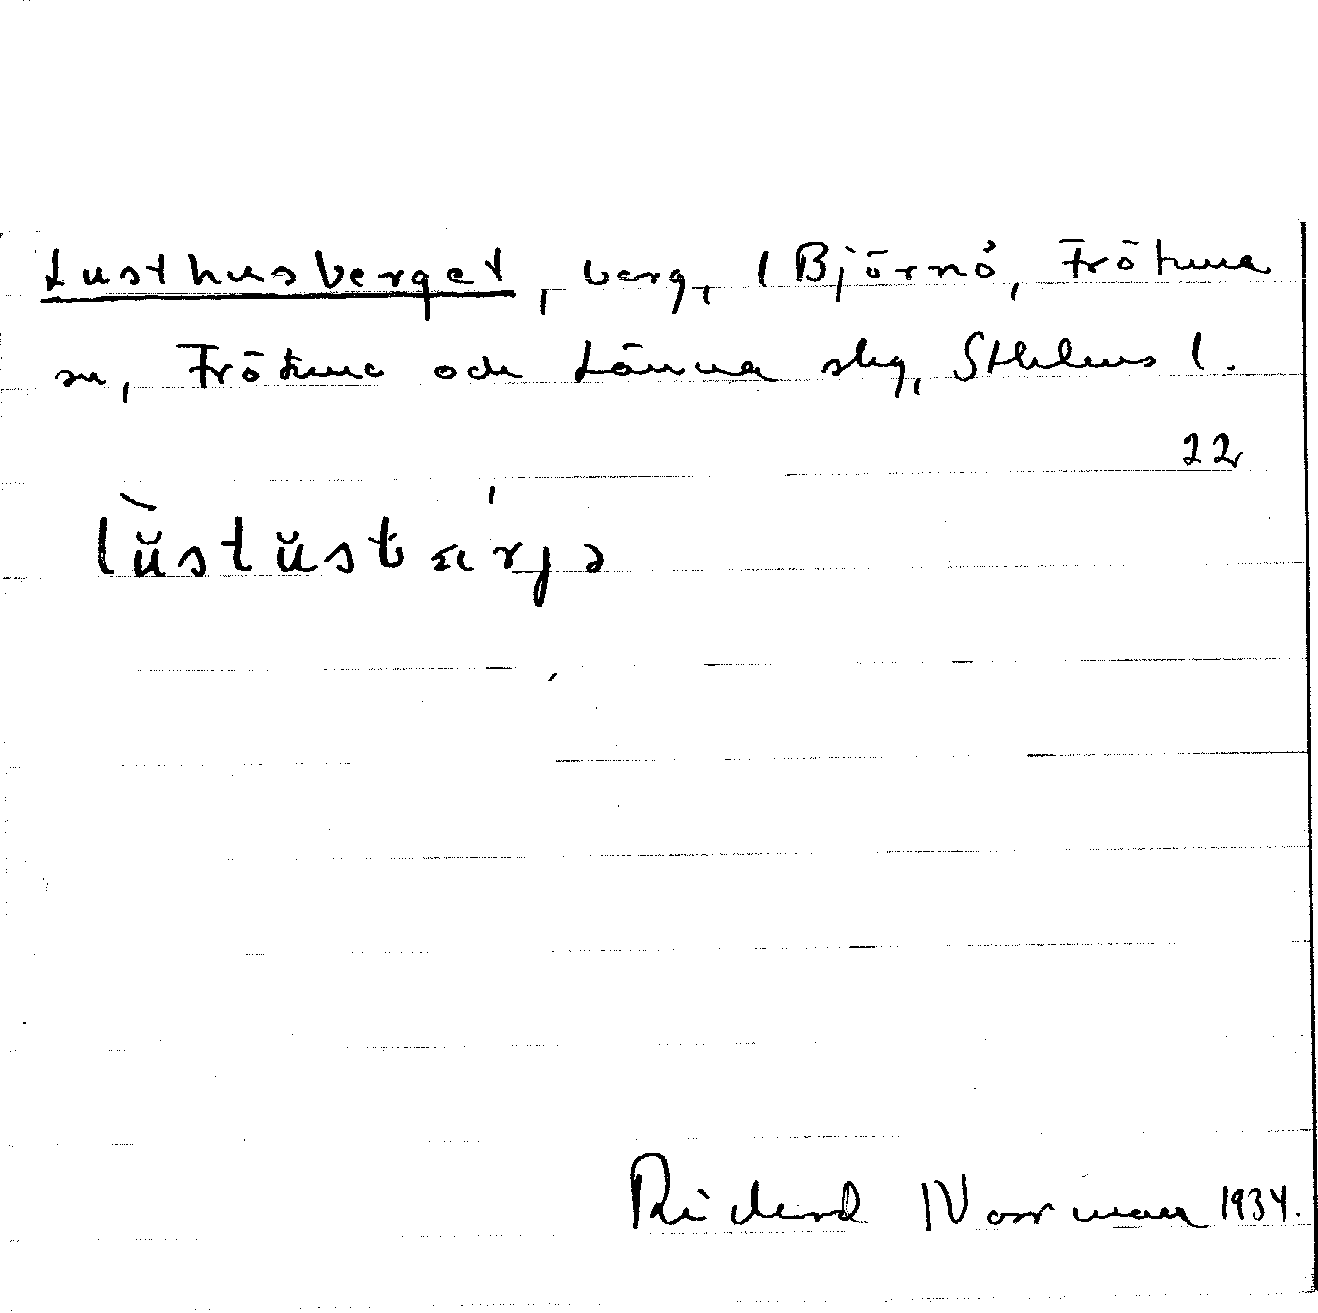 Lusthusberget, berg, l Björnö, Frötuna
sn, Frötuna och Länna skg, Sthlms l.
22
lŭstŭsbærjə
Rickard Norrman 1934.